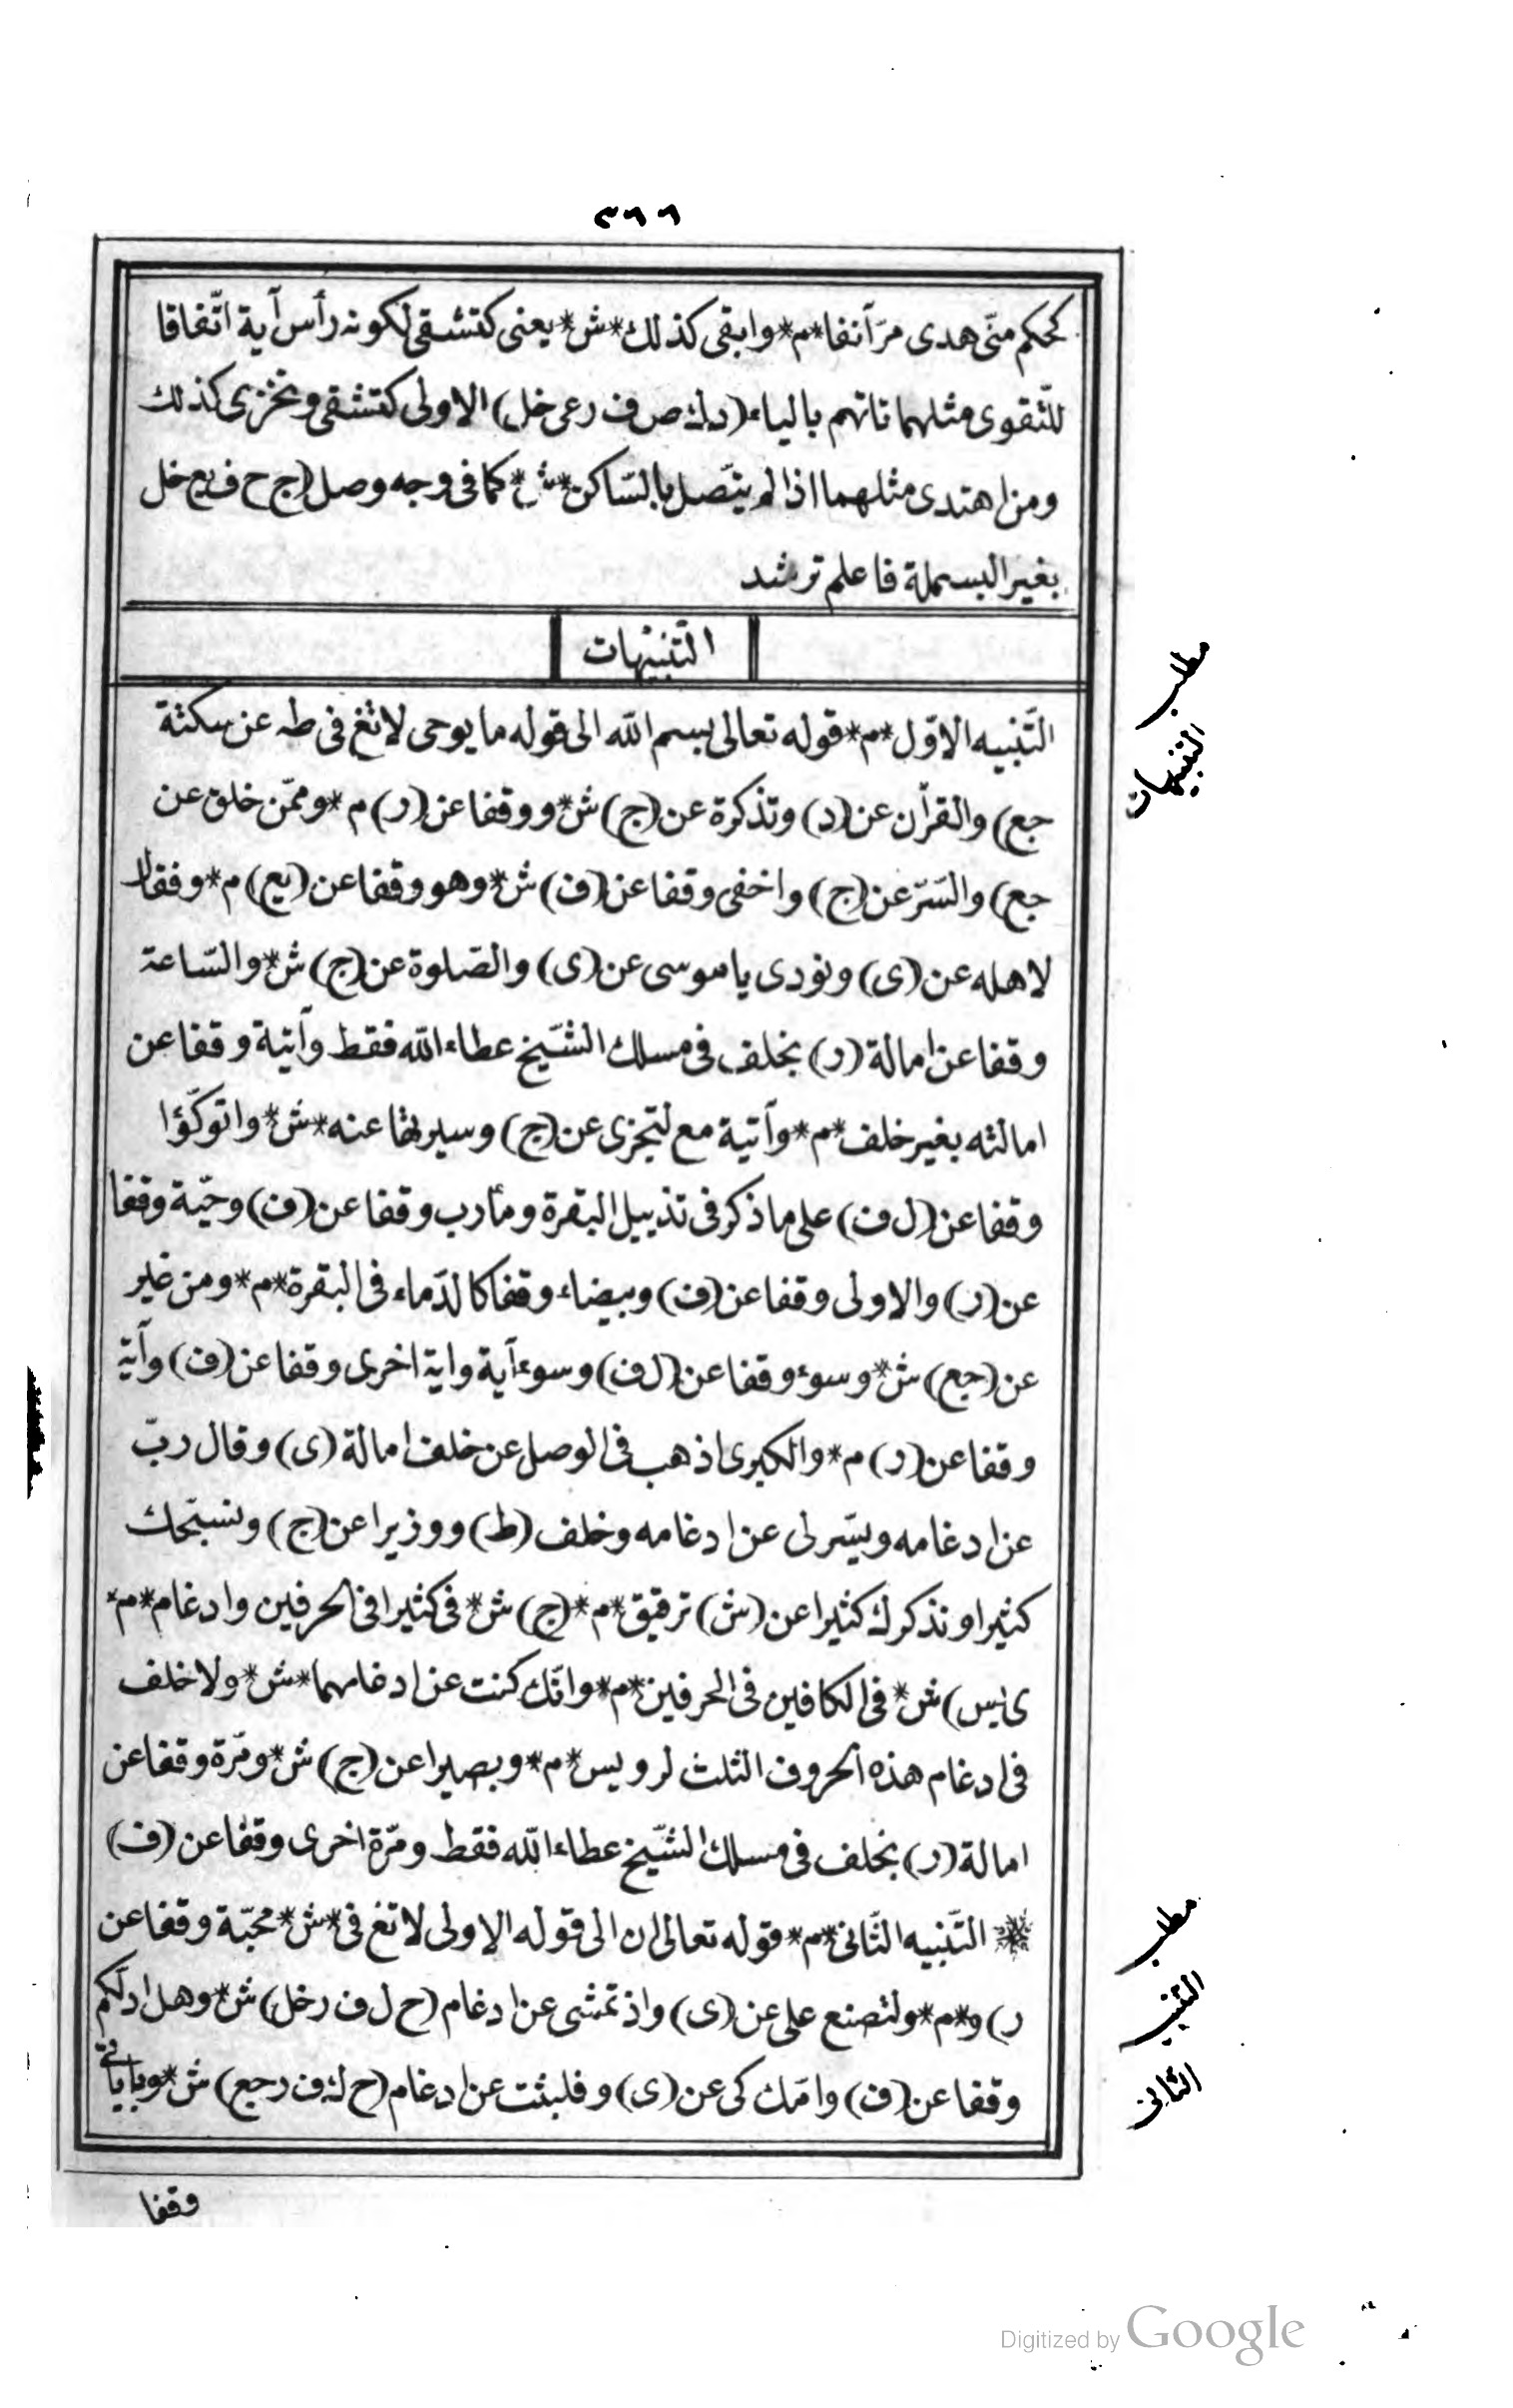 ٣٦٦
كحكم منّى هدى مرّ آنفا *م* وابقى كذلك *ش* يعنى كتشقى لكونه رأس آية اتّفاقا
للتّقوى مثلهما تاتهم بالياء (د ك ص ف ر عى خل) الاولى كتشقى ونخزى كذلك
ومن اهتدى مثلهما اذا لم يتّصل بالسّاكن *ش* كما فى وجه وصل (ج ح ف يع خل
بغير البسملة فاعلم ترشد
التّنبيهات
التّنبيه الاوّل *م* قوله تعالى بسم الله الى قوله ما يوحى لا تغ فى طه عن سكتة
جع) والقرآن عن (د) وتذكرة عن (ج) ش* ووقفا عن (ر) م* وممّن خلق عن
جع) والسّرّ عن (ج) واخفى وقفا عن (ف) ش* وهو وقفا عن (يع) م* وفقال
لاهله عن (ى) ونودى يا موسى عن (ى) والصّلوة عن (ج) ش* والسّاعة
وقفا عن امالة (ر) بخلف فى مسلك الشّيخ عطاء الله فقط وآتية وقفا عن
امالته بغير خلف *م* وآتية مع لتجزى عن (ج) وسيرتها عنه *ش* واتوكّؤا
وقفا عن (ل ف) على ما ذكر فى تذييل البقرة ومأرب وقفا عن (ف) وحيّة وقفا
عن (ر) والاولى وقفا عن (ف) وبيضاء وقفا كالدّماء فى البقرة *م* ومن غير
عن (جع) ش* وسوء وقفا عن (ل ف) وسوء آية واية اخرى وقفا عن (ف) وآية
وقفا عن (ر) م* والكبرى اذهب فى الوصل عن خلف امالة (ى) وقال ربّ
عن ادغامه ويسّر لى عن ادغامه وخلف (ط) ووزيرا عن (ج) ونسبّحك
كثيرا ونذكرك كثيرا عن (ش) ترقيق *م* (ج) ش* فى كثيرا فى الحرفين وادغام *م*
ى يس) ش* فى الكافين فى الحرفين *م* وانّك كنت عن ادغامهما *ش* ولا خلف
فى ادغام هذه الحروف الثلث لرويس *م* وبصيرا عن (ج) ش* ومرّة وقفا عن
امالة (ر) بخلف فى مسلك الشّيخ عطاء الله فقط ومرّة اخرى وقفا عن (ف)
* التّنبيه الثّانى *م* قوله تعالى ان الى قوله الاولى لا تغ فى *ش* محبّة وقفا عن
ر) و *م* ولتصنع على عن (ى) واذ تمشى عن ادغام (ح ل ف ر خل) ش* وهل ادلّكم
وقفا عن (ف) وامّك كى عن (ى) وفلبثت عن ادغام (ح ك ف ر جع) ش* وبآياتى
وقفا
مطلب
التنبيهات
مطلب
التنبيه
الثانى
Digitized by Google